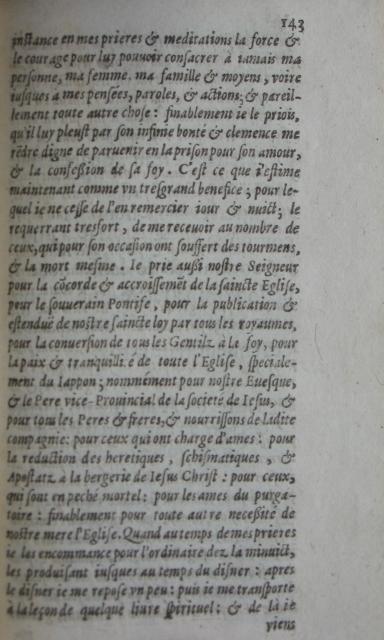 143
instance en mes prieres & meditations la force &
le courage pour luy pouvoir consacrer à iamais ma
personne, ma femme, ma famille & moyens, voire
iusques a mes pensées, paroles, & actions; & pareil-
lement toute autre chose: finablement ie le priois,
qu'il luy pleust par son infinie bonté & clemence me
rẽdre digne de paruenir en la prison pour son amour,
& la confession de sa foy. C'est ce que i'estime
maintenant comme vn tresgrand benefice; pour le-
quel ie ne cesse de l'en remercier iour & nuict; le
requerrant tresfort, de me receuoir au nombre de
ceux, qui pour son occasion ont souffert des tourmens,
& la mort mesme. Ie prie aussi nostre Seigneur
pour la cõcorde & accroissemẽt de la saincte Eglise,
pour le souuerain Pontife, pour la publication &
estenduë de nostre saincte loy par tous les royaumes,
pour la conuersion de tous les Gentilz à la foy, pour
la paix & tranquillité de toute l'Eglise, speciale-
ment du Iappon; nommément pour nostre Euesque,
& le Pere vice-Prouincial de la societé de Iesus, &
pour tous les Peres & freres, & nourrissons de ladite
compagnie: pour ceux qui ont charge d'ames: pour
la reduction des heretiques, schismatiques, &
Apostatz a la bergerie de Iesus Christ: pour ceux,
qui sont en peché mortel: pour les ames du purga-
toire: finablement pour toute autre necessité de
nostre mere l'Eglise. Quand au temps de mes prieres
ie les encommance pour l'ordinaire dez la minuict,
les produisant iusques au temps du disner: apres
le disner ie me repose vn peu: puis ie me transporte
à la leçon de quelque liure spirituel: & de là ie
viens